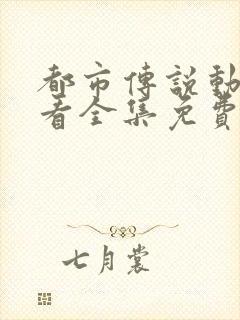 都市傳說動
看全集免費
七月裳